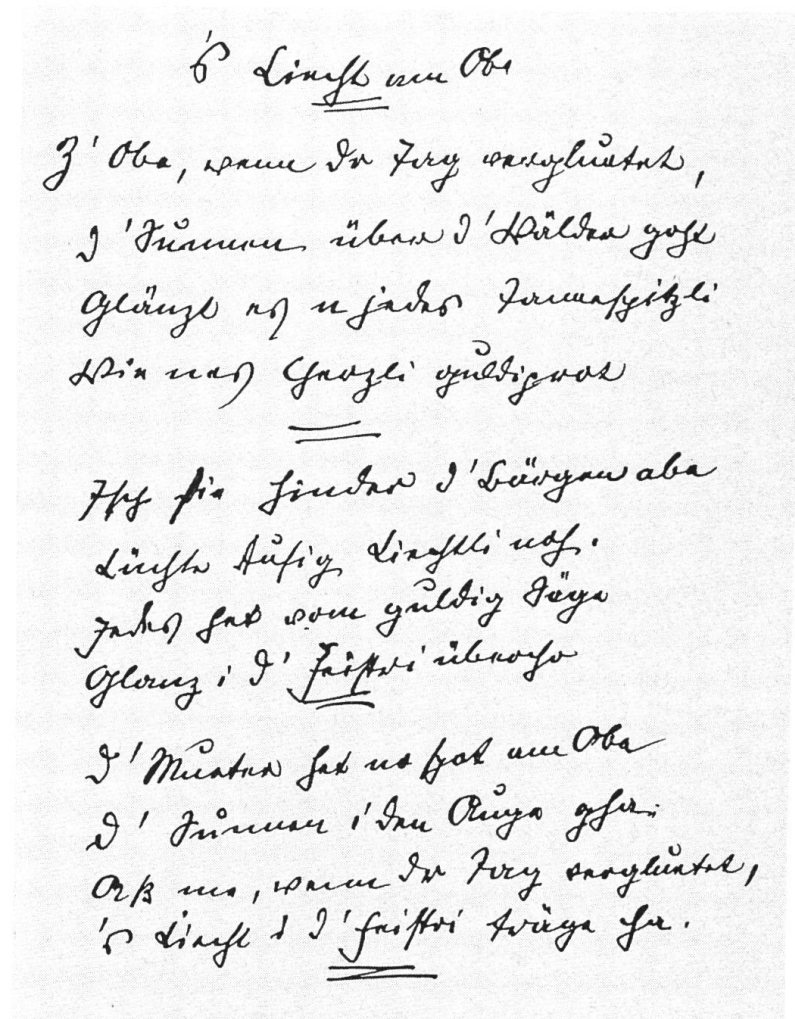 's Liecht am Obe
Z' Obe, wenn dr Tag vergluetet,
d' Sunnen über d' Wälder goht
Glänzt es n jedes Tannespitzli
Wie nes Cherzli guldigrot
Isch sie hinder d' Bärgen abe
Lüchte tusig Liechtli noh.
Jedes het vom guldig Säge
Glanz i d' Feistri übercho
d' Mueter het no spot am Obe
d' Sunnen i den Auge gha:
Aß me, wenn dr Tag vergluetet,
's Liecht i d' Feistri träge cha.